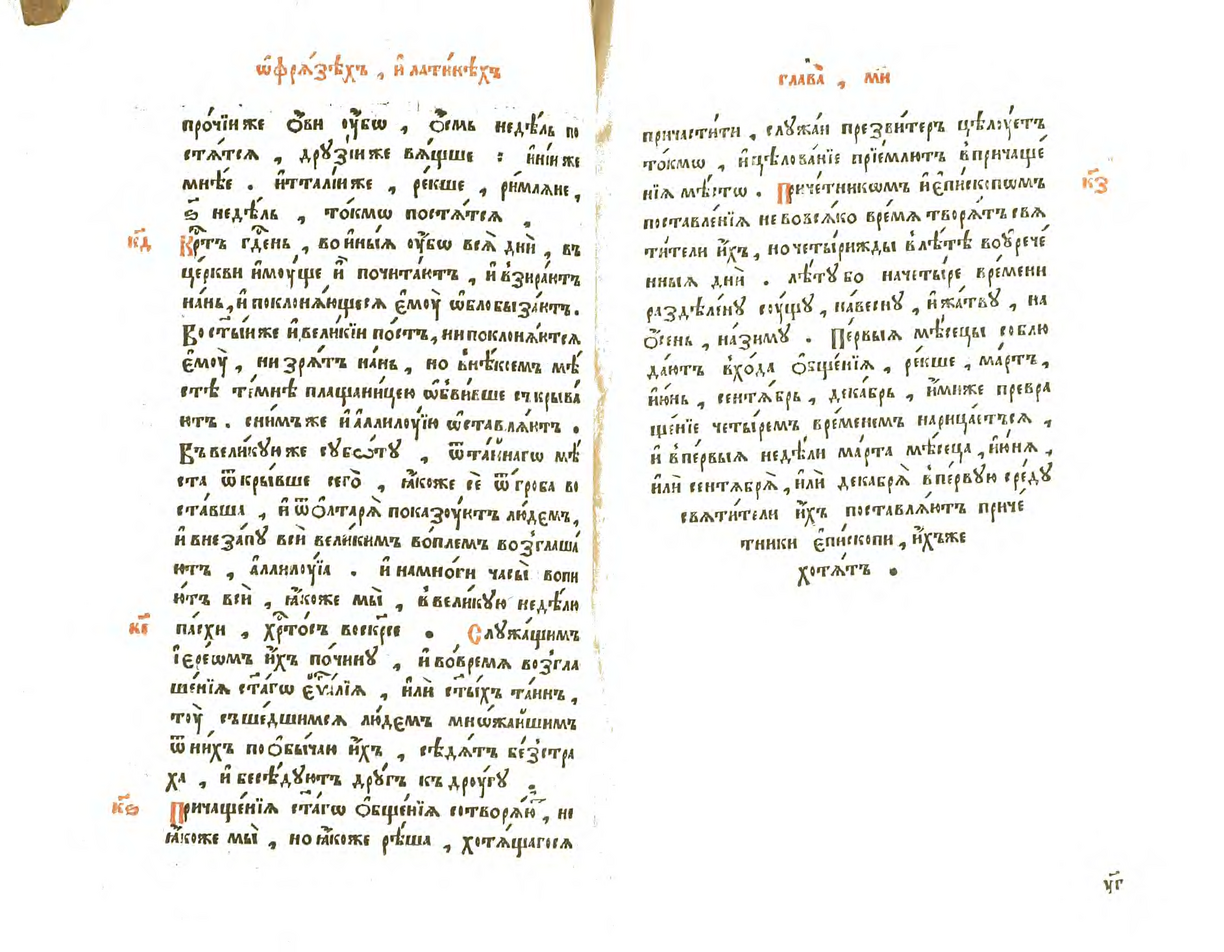 ѡ҆фрѧ́зѣхъ , и҆ лати́нѣхъ
про́чїиже ѻ҆́ви ᲂу҆́бѡ , ѻ҆́смь недѣ́ль по
стѧ́тсѧ , дрꙋзі́иже вѧ́щше : и҆ні́и же
мнѣ́е . и҆тталі́иже , ре́кше , ри́млѧне ,
ѕ҃ недѣ́ль , то́кмѡ постѧ́тсѧ ,
к҃д
Кр҇тъ гд҇ень , во и҆ны́ѧ ᲂу҆́бѡ всѧ̀ дни̑ , въ
це́ркви и҆моу́ще и҆̀ почита́ютъ , и҆ взира́ютъ
на́нь , и҆ поклонѧ́ющесѧ є҆моу̀ ѡ҆блобыза́ютъ .
Во ст҃ы́иже и҆ вели́кїи по́стъ , ни поклонѧ́ютсѧ
є҆моу̀ , ни зрѧ́тъ на́нь , но в нѣ́коемъ мѣ́
стѣ те́мнѣ плащани́цею ѡ҆бви́вше съкрыва́
ютъ . сни́мъже и҆ а҆ллилоу́їю ѡ҆ставлѧ́ютъ .
Въ вели́кꙋюже сꙋбѡ́тꙋ , ѿ та́йнагѡ мѣ́
ста ѿкры́вше сего̀ , ꙗ҆́коже сѐ ѿ гро́ба во
ста́вша , и҆ ѿ ѻ҆лтарѧ̀ показоу́ютъ лю́демъ ,
и҆ внеза́пꙋ всѝ вели́кимъ во́племъ возглаша́
ютъ , а҆ллилоу́їа . и҆ на мно́ги часы̀ вопи
ю́тъ всѝ , ꙗ҆́коже мы̀ , в вели́кꙋю недѣ́лю
к҃е
па́схи , хр҇то́съ воскр҇се . Слꙋжа́щимъ
і҆ере́ѡмъ и҆́хъ по чи́нꙋ , и҆ во вре́мѧ возгла
ше́нїѧ ст҃а́гѡ є҆ѵⷢ҇а́лїѧ , и҆лѝ ст҃ы́хъ та́инъ ,
тоу̀ съше́дшимсѧ лю́демъ мнѡ́жайшимъ
ѿ ни́хъ по ѻ҆бы́чаю и҆́хъ , сѣдѧ́тъ без̾ стра́
ха , и҆ бесѣ́дꙋютъ дрꙋ́гъ къ дроу́гꙋ .
к҃ѕ
Причаще́нїѧ ст҃а́гѡ ѻ҆бще́нїѧ сотворѧ́ю҇ , не
ꙗ҆́коже мы̀ , но ꙗ҆́коже рѣ́ша , хотѧ́щагосѧ
глава̀ , м҃и
причасти́ти , слꙋжа́и презви́теръ цѣлꙋ́етъ
то́кмѡ , и҆ цѣлова́нїе прїе́млютъ в причаще́
нїѧ мѣ́стѡ . Приче́тникѡмъ и҆ є҆пи́скопѡмъ
к҃з
поставле́нїѧ не во всѧ́ко вре́мѧ творѧ́тъ свѧ
ти́тели и҆́хъ , но четы́рижды в лѣ́тѣ во ᲂу҆рече́
нныѧ дни̑ . лѣ́тꙋ бо на четы́ре вре́мени
раздѣле́нꙋ соу́щꙋ , на́веснꙋ , и҆ жа́твꙋ , на
ѻ҆́сень , на́зимꙋ . Пе́рвыѧ мѣ́сецы соблю
да́ютъ вхо́да ѻ҆бще́нїѧ , ре́кше , ма́ртъ ,
и҆ю́нь , сентѧ́брь , дека́брь , и҆́миже превра
ще́нїе четы́ремъ временемъ нарица́етсѧ ,
и҆ в пе́рвыѧ недѣ́ли ма́рта мѣ́сеца , и҆ю́нѧ ,
и҆лѝ сентѧбрѧ̀ , и҆лѝ декабрѧ̀ в пе́рвꙋю сре́дꙋ
свѧти́тели и҆́хъ поставлѧ́ютъ приче́
тники є҆пи́скопи , и҆́хъже
хотѧ́тъ .
у҃г